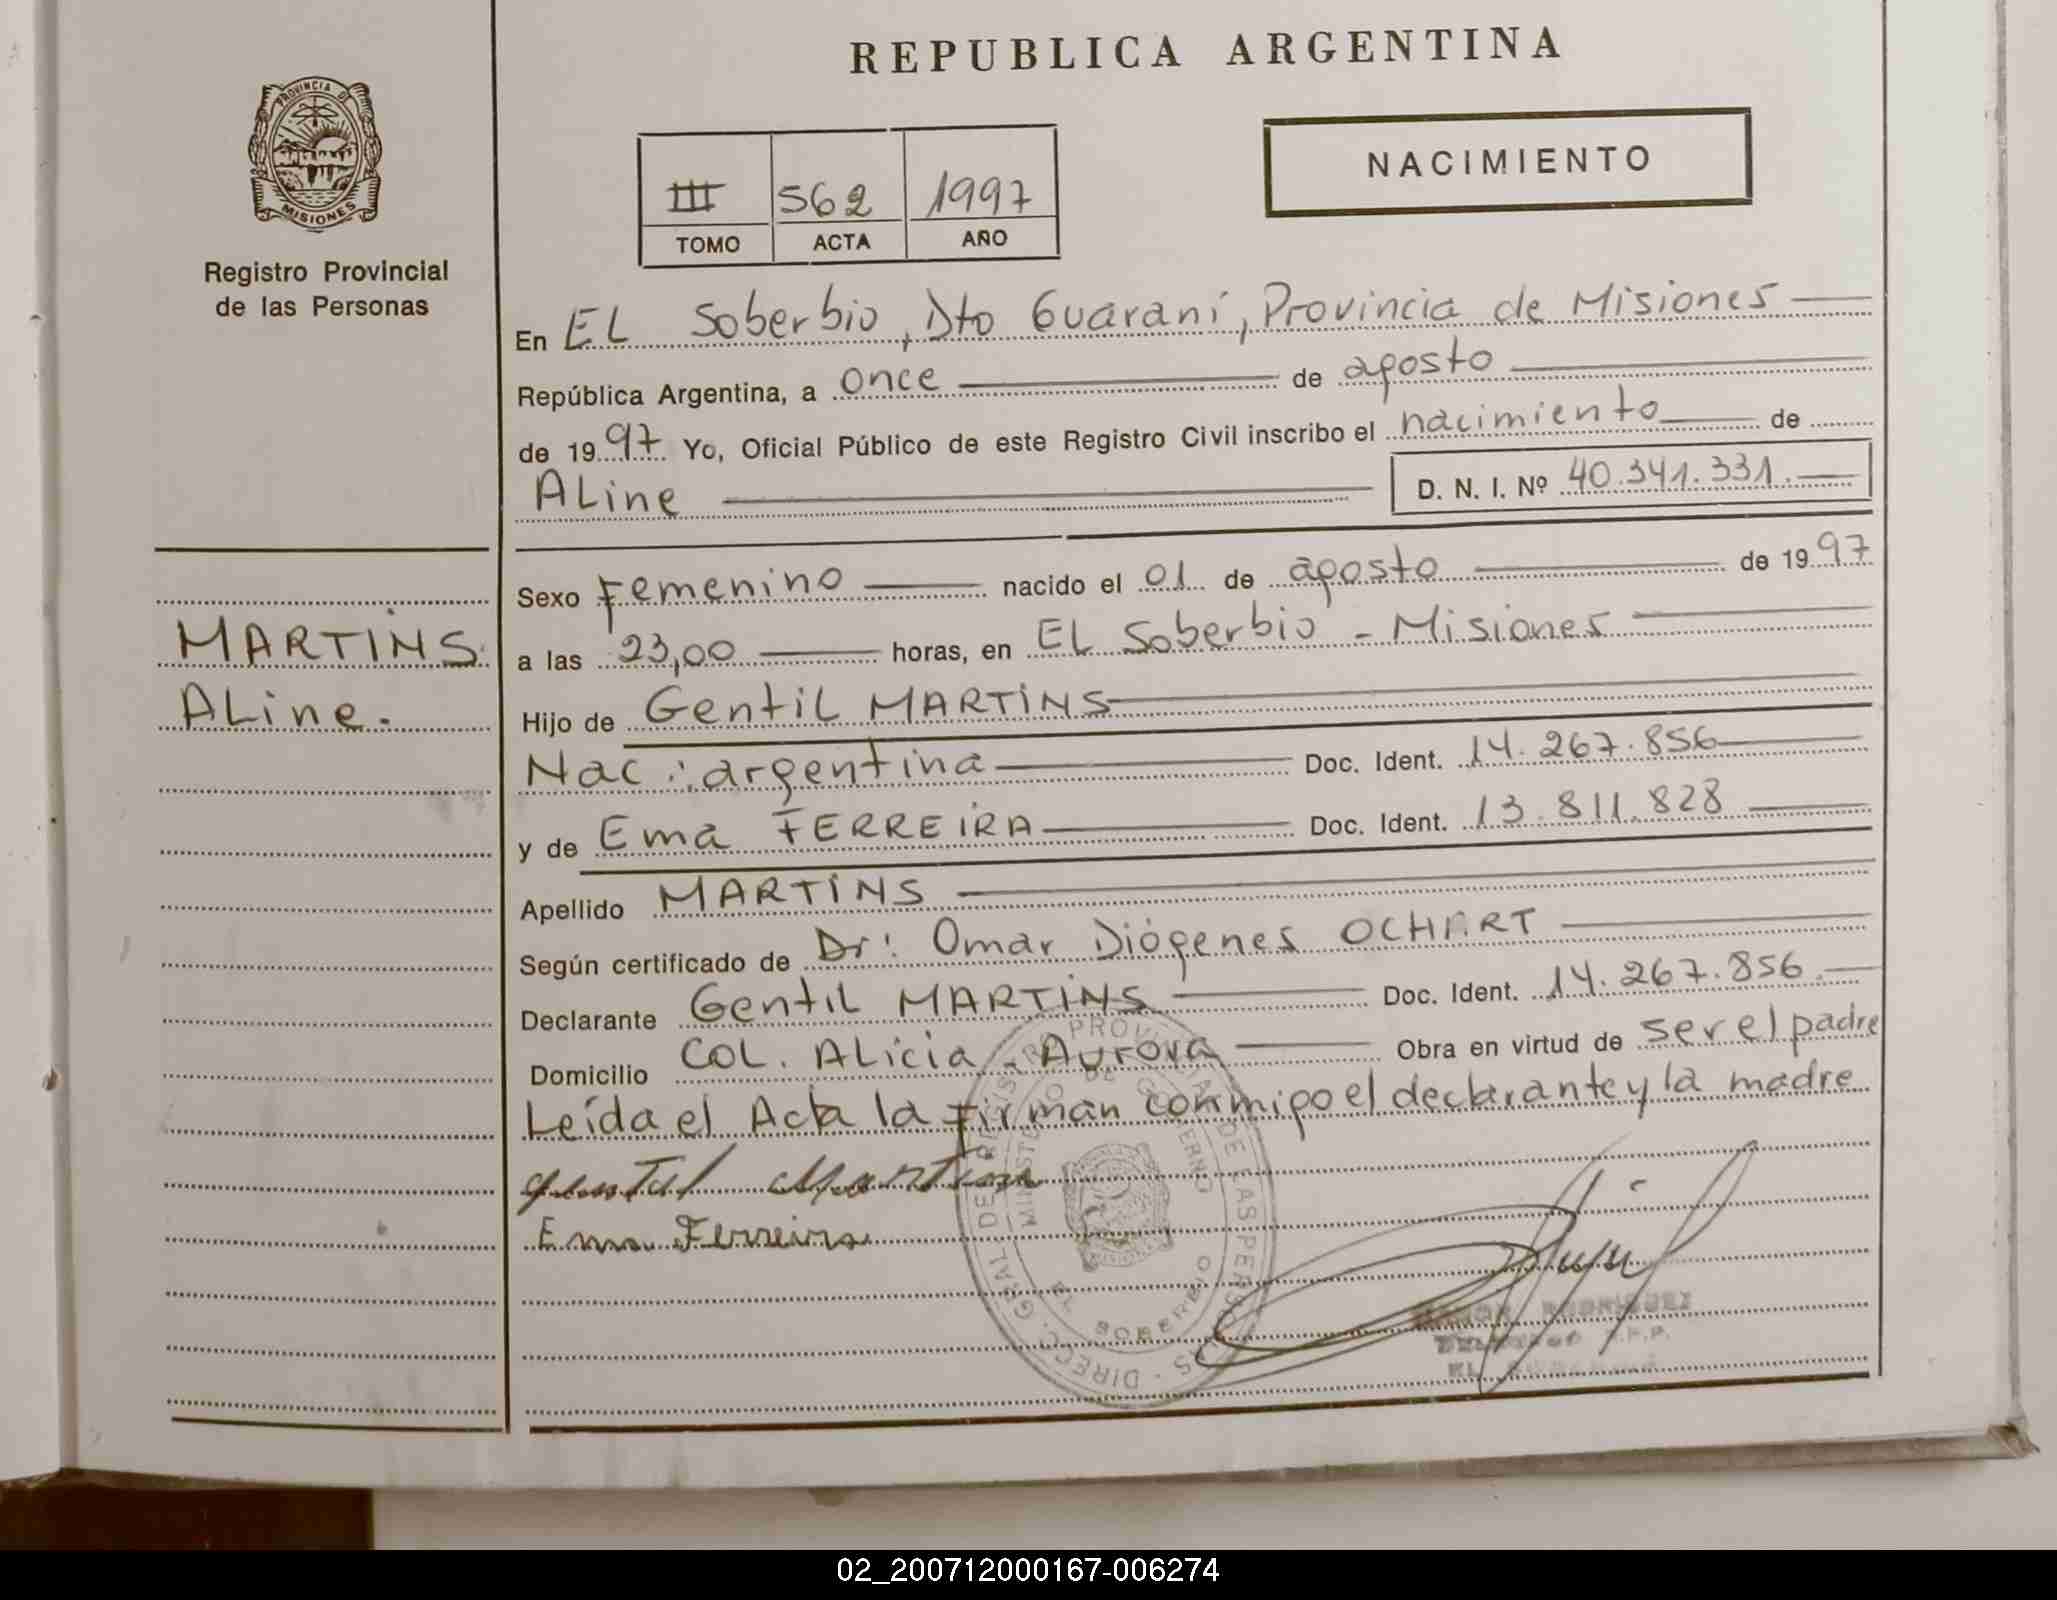 REPUBLICA ARGENTINA
PROVINCIA DE
MISIONES
Registro Provincial
de las Personas
III 562 1997
TOMO ACTA AÑO
NACIMIENTO
En EL Soberbio, Dto Guaraní, Provincia de Misiones
República Argentina, a once de agosto
de 1997 Yo, Oficial Público de este Registro Civil inscribo el nacimiento de
ALine D. N. I. Nº 40.341.331.
MARTINS
ALine.
Sexo Femenino nacido el 01 de agosto de 1997
a las 23,00 horas, en EL Soberbio - Misiones
Hijo de GentiL MARTINS
Nac: argentina Doc. Ident. 14.267.856
y de Ema FERREIRA Doc. Ident. 13.811.828
Apellido MARTINS
Según certificado de Dr: Omar Diógenes OCHART
Declarante GentiL MARTINS Doc. Ident. 14.267.856.
Domicilio COL. ALicia - Aurora Obra en virtud de ser el padre
Leída el Acta la firman conmigo el declarante y la madre
Ema Ferreira
DIRECC. GRAL DE REGISTRO PROVINCIAL DE LAS PERSONAS
MINISTERIO DE GOBIERNO
EL SOBERBIO
RODRIGUEZ
02_200712000167-006274